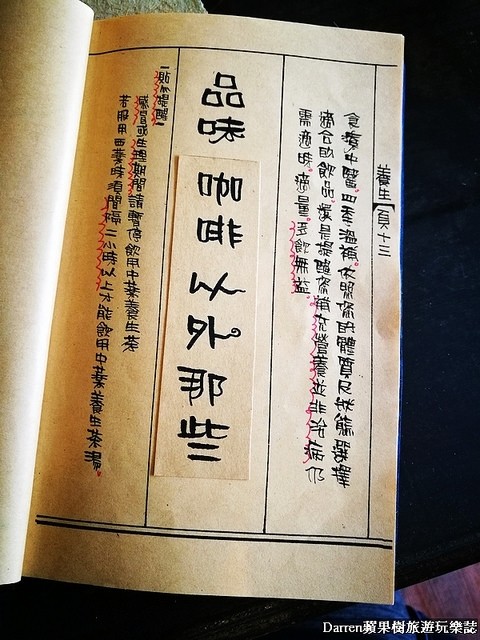 養生【頁十三
食療中醫。四季溫補。依照您的體質及狀態選擇
適合的飲品。還是提醒您補充營養並非治病仍
需適時。適量。多飲無益。
品味咖啡以外。那些
一貼心提醒一
感冒或生理期間請暫停飲用中藥養生茶
若服用西藥時須間隔二小時以上才能飲用中藥養生茶湯。
Darren蘋果樹旅遊玩樂誌